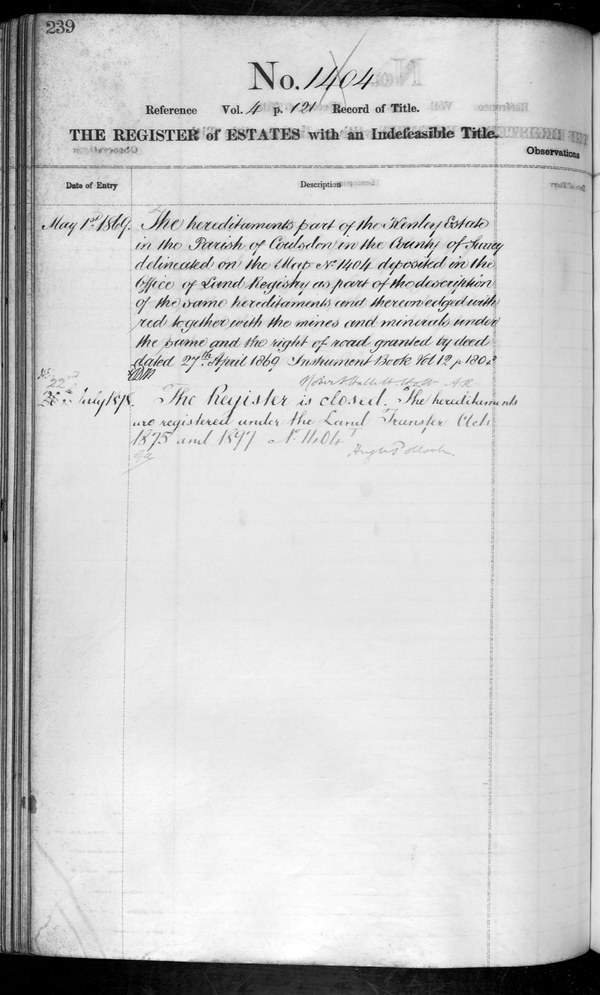 239
No. 1404
Reference Vol. 4 p. 121 Record of Title.
THE REGISTER of ESTATES with an Indefeasible Title.
Observations
Date of Entry
Description
May 1st 1869. The hereditaments part of the Kenley Estate
in the Parish of Coulsdon in the County of Surrey
delineated on the Map No 1404 deposited in the
Office of Land Registry as part of the description
of the same hereditaments and thereon edged with
red together with the mines and minerals under
the same and the right of road granted by deed
dated 27th April 1869 Instrument Book Vol 12 p 180
Robert Hallett Holt A.R.
22nd
July 1898. The Register is closed. The hereditaments
are registered under the Land Transfer Acts
1875 and 1897 No 1404
Hugh Pollock.